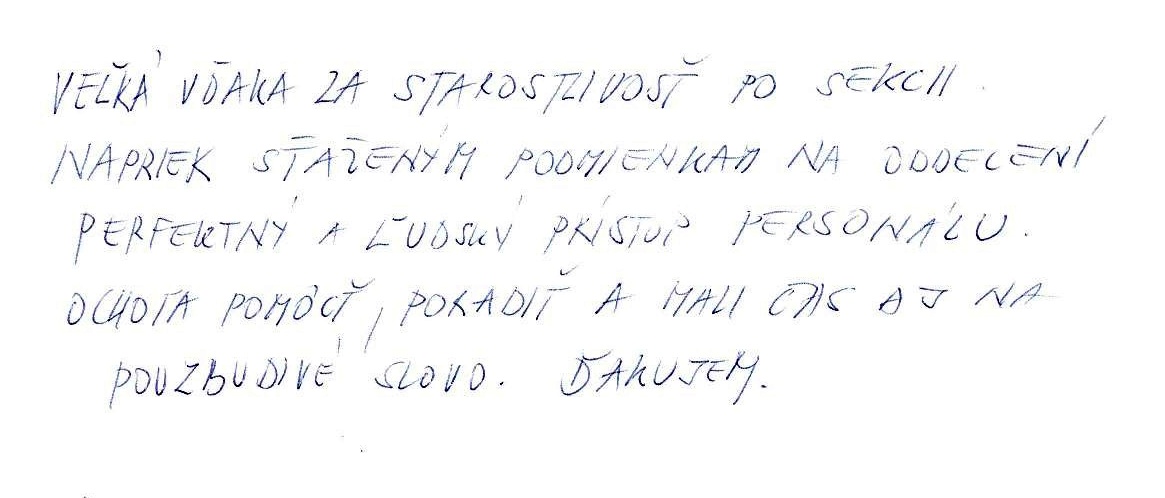 VEĽKÁ VĎAKA ZA STAROSTLIVOSŤ PO SEKCII.
NAPRIEK SŤAŽENÝM PODMIENKAM NA ODDELENÍ
PERFEKTNÝ A ĽUDSKÝ PRÍSTUP PERSONÁLU.
OCHOTA POMÔCŤ, PORADIŤ A MALI ČAS AJ NA
POVZBUDIVÉ SLOVO. ĎAKUJEM.